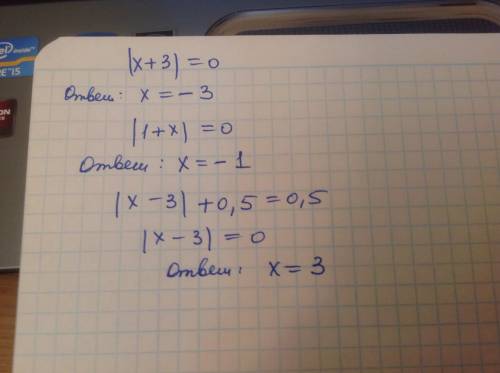 |x+3| = 0
Ответ: x = -3
|1+x| = 0
Ответ: x = -1
|x-3| + 0,5 = 0,5
|x-3| = 0
Ответ: x = 3
inside™